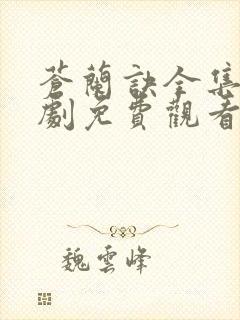 蒼蘭訣全集
劇免費觀看
魏雲峰